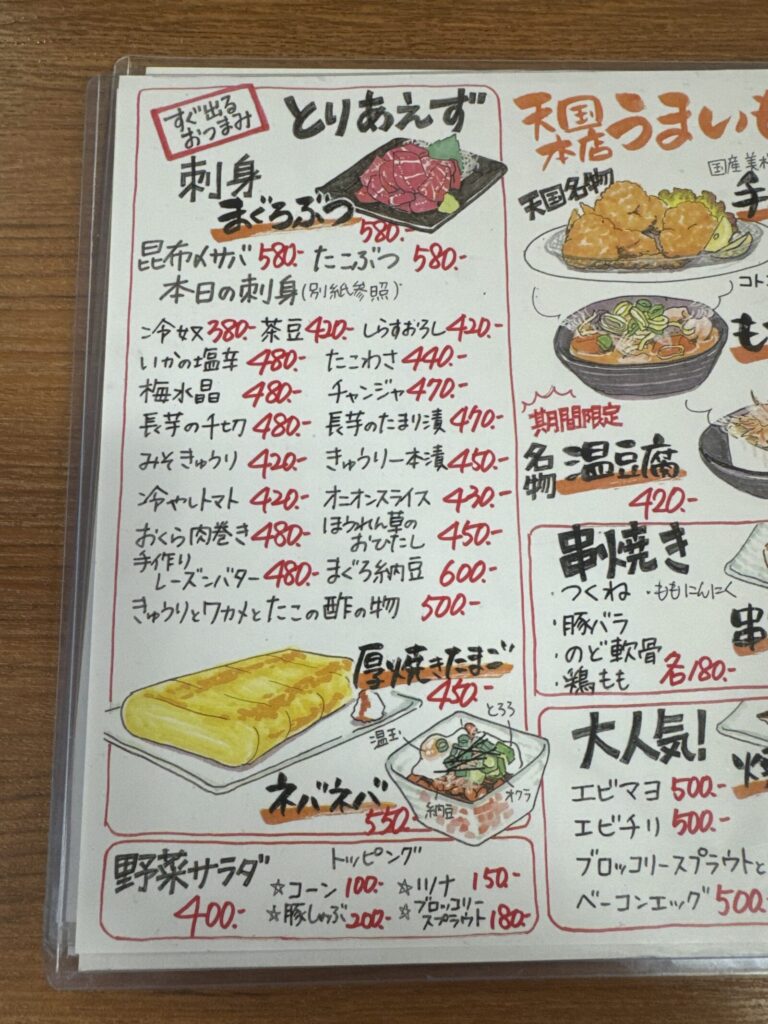 すぐ出る
おつまみ
とりあえず
刺身
まぐろぶつ
580.-
昆布〆サバ 580.- たこぶつ 580.-
本日の刺身(別紙参照)
冷奴 380.- 茶豆 420.- しらすおろし 420.-
いかの塩辛 480.- たこわさ 440.-
梅水晶 480.- チャンジャ 470.-
長芋の千切 480.- 長芋のたまり漬 470.-
みそきゅうり 420.- きゅうり一本漬 450.-
冷やしトマト 420.- オニオンスライス 430.-
おくら肉巻き 480.- ほうれん草の
おひたし 450.-
手作り
レーズンバター 480.- まぐろ納豆 600.-
きゅうりとワカメとたこの酢の物 500.-
厚焼きたまご
450.-
温玉
とろろ
納豆
オクラ
ネバネバ
550.-
野菜サラダ
400.-
トッピング
☆コーン 100.- ☆ツナ 150.-
☆豚しゃぶ 200.- ☆ブロッコリー
スプラウト 180.-
天国
本店
うまいも
国産美
天国名物
手
コト
も
期間限定
名物
温豆腐
420.-
串焼き
・つくね ・ももにんにく
・豚バラ
・のど軟骨
・鶏もも 各180.-
串
大人気!
エビマヨ 500.-
エビチリ 500.-
ブロッコリースプラウトと
ベーコンエッグ 500.-